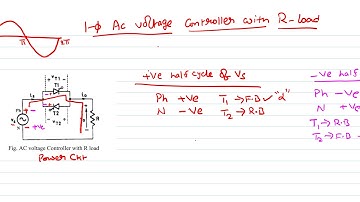 1-ϕ Ac voltage Controller with R-load
π
2π
+ve half cycle of Vs
Ph +ve T1 → F.B ✓ "α"
N -Ve T2 → R.B
-Ve half
Ph -Ve
N +Ve
T1 → R.B
T2 → F.B
VT1
T1
T2
VT2
Ph
N
+Ve
R
Fig. AC voltage Controller with R load
Power Ckt